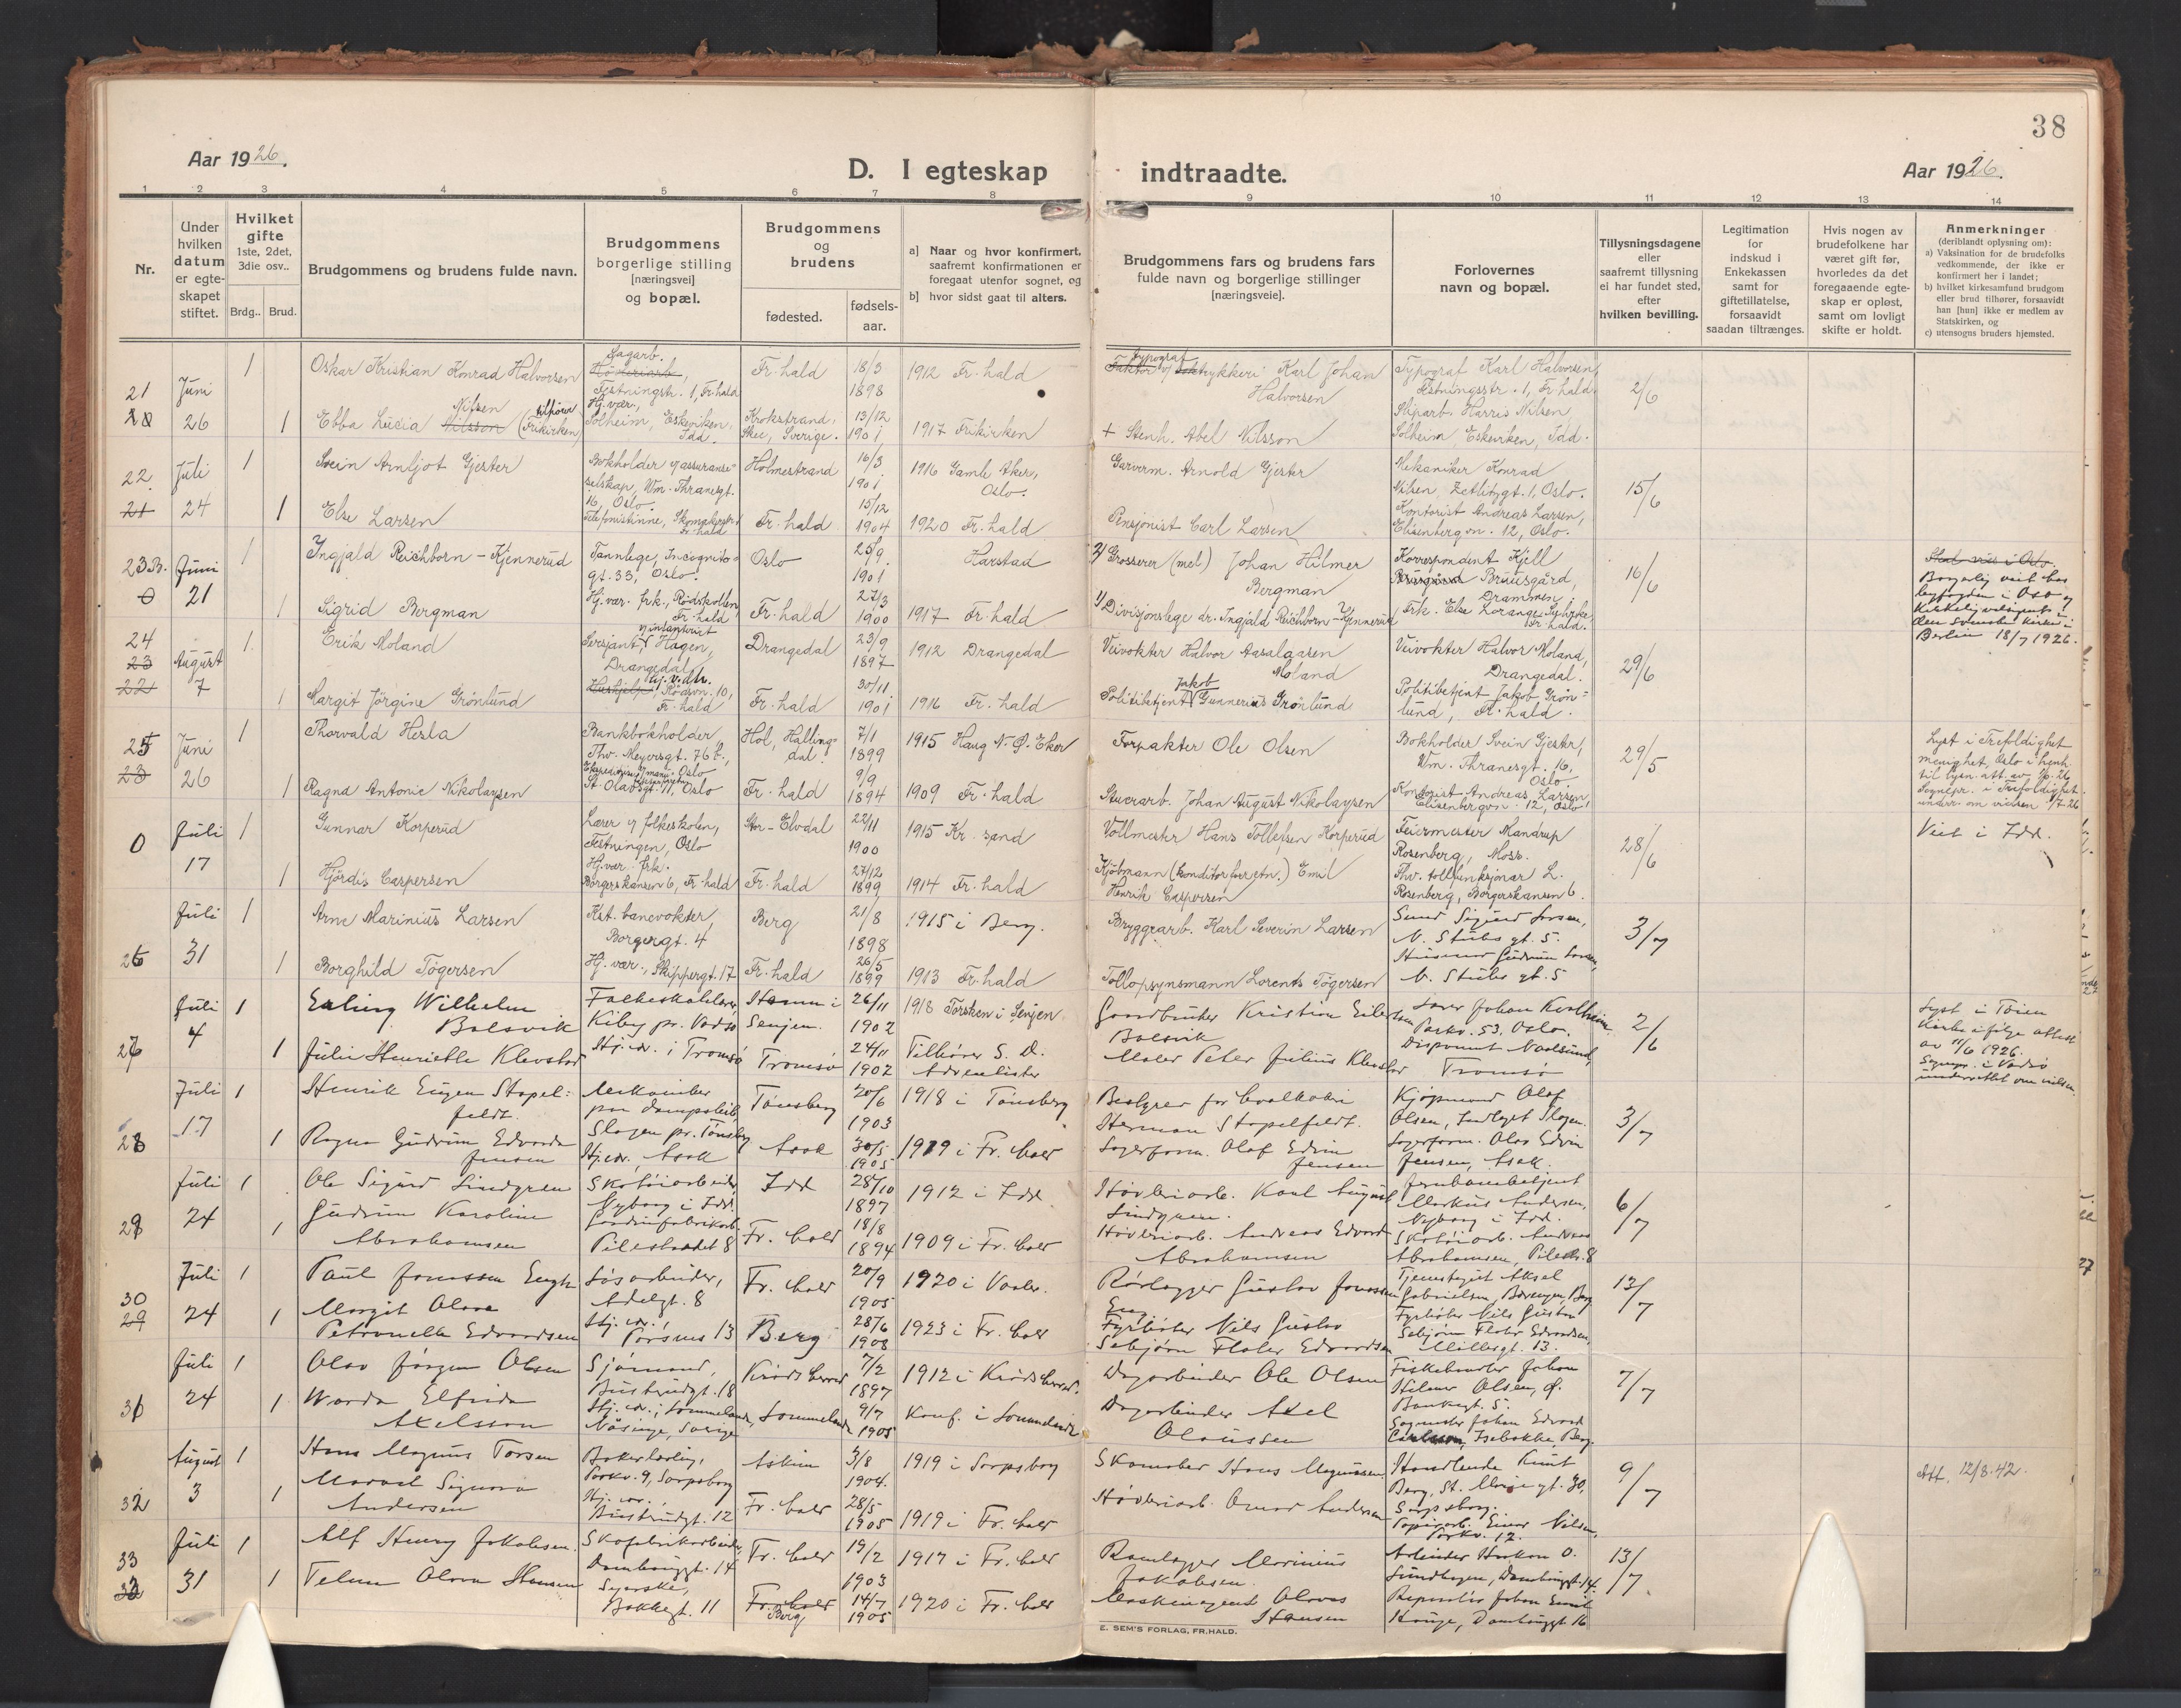 38
Aar 1926.
D. I egteskap indtraadte.
Aar 1926.
1 2 3 4 5 6 7 8 9 10 11 12 13 14
Nr.
Under hvilken datum er egte-skapet stiftet.
Hvilket gifte 1ste, 2det, 3die osv..
Brdg.. Brud.
Brudgommens og brudens fulde navn.
Brudgommens borgerlige stilling [næringsvei] og bopæl.
Brudgommens og brudens
fødested.
fødsels-aar.
a] Naar og hvor konfirmert, saafremt konfirmationen er foregaat utenfor sognet, og
b] hvor sidst gaat til alters.
Brudgommens fars og brudens fars fulde navn og borgerlige stillinger [næringsveie].
Forlovernes navn og bopæl.
Tillysningsdagene eller saafremt tillysning ei har fundet sted, efter hvilken bevilling.
Legitimation for indskud i Enkekassen samt for giftetillatelse, forsaavidt saadan tiltrænges.
Hvis nogen av brudefolkene har været gift før, hvorledes da det foregaaende egte-skap er opløst, samt om lovligt skifte er holdt.
Anmerkninger (deriblandt oplysning om):
a) Vaksination for de brudefolks vedkommende, der ikke er konfirmert her i landet;
b) hvilket kirkesamfund brudgom eller brud tilhører, forsaavidt han [hun] ikke er medlem av Statskirken, og
c) utensogns bruders hjemsted.
21 Juni 26
1 Oskar Kristian Konrad Halvorsen
Sagarb. Festningstr. 1, Fr.hald
Fr.hald 18/3 1898
1912 Fr.hald
typograf Karl Johan Halvorsen
Typograf Karl Halvorsen, Festningsstr. 1, Fr.hald.
2/6
1 Ebba Lucia Nilsen Nilsson (tilhører Frikirken)
Hj.vær., Solheim, Eskeviken, Idd.
Krokstrand, Skee, Sverige. 13/12 1901
1917 Frikirken
+ Stenh. Abel Nilsson
Sliparb. Harris Nilsen, Solheim, Eskeviken, Idd.
22. 21 Juli 24
1 Svein Arnljot Gjester
Bokholder v/ assuranse-selskap, Wm. Thranesgt. 16, Oslo.
Holmestrand 16/3 1901
1916 Gamle Aker, Oslo.
Garverm. Arnold Gjester
Mekaniker Konrad Nilsen, Zetlitzgt. 1, Oslo.
15/6
1 Else Larsen
Telefonistinne, Fr.hald
Fr.hald 15/12 1904
1920 Fr.hald
Pensjonist Carl Larsen
Kontorist Andreas Larsen, Elisenberg vn. 12, Oslo.
23B. 0 Juni 21
1 Ingjald Reichborn-Kjennerud
Tannlege, Incognito-gt. 33, Oslo.
Oslo 25/9 1901
Harstad
2) Grosserer (mel) Johan Hilmer Bergman
Korrespondent Kjell Bruusgård, Drammen.
16/6
Borgerlig viet hos byfogden i Oslo og kirkelig i den svenske kirke i Berlin 18/7 1926.
1 Sigrid Bergman
Hj.vær. frk., Rødskollen, Fr.hald
Fr.hald 27/3 1900
1917 Fr.hald
1) Divisjonslege dr. Ingjald Reichborn-Kjennerud
Frk. Else Lorange, Fr.hald.
24 23 22 August 7
1 Erik Moland
Sersjant v/ infanteriet, Hagen, Drangedal
Drangedal 23/9 1897
1912 Drangedal
Veivokter Halvor Aasalaasen Moland
Veivokter Halvor Moland, Drangedal.
29/6
1 Margit Jörgine Grönlund
Rödsvn. 10, Fr.hald
Fr.hald 30/11 1901
1916 Fr.hald
Politibetjent Jakob Gunnerius Grönlund
Politibetjent Jakob Grön-lund, Fr.hald.
25 23 Juni 26
1 Thorvald Hesla
Bankbokholder, Thv. Meyersgt. 76 b., Oslo
Hol, Halling-dal. 7/1 1899
1915 Haug N. Ø. Eker
Forpakter Ole Olsen
Bokholder Svein Gjester, Wm. Thranesgt. 16, Oslo.
29/5
Lyst i Trefoldighet menighet, Oslo i henh. til lysn. att.
1 Ragna Antonie Nikolaysen
St. Olavsgt. 11, Oslo
Fr.hald 9/9 1894
1909 Fr.hald
Stuerarb. Johan August Nikolaysen
Kontorist Andreas Larsen, Elisenbergvn. 12, Oslo
0 Juli 17
1 Gunnar Korperud
Lærer v/ folkeskolen, Festningen, Oslo
Stor-Elvdal 22/11 1900
1915 Kr.sand
Vollmester Hans Tollefsen Korperud
Feiermester Mandrup Rosenberg, Moss.
28/6
Viet i Idd.
1 Hjördis Caspersen
Hj.vær. frk. Borgerskansen 6, Fr.hald
Fr.hald 27/12 1899
1914 Fr.hald
Kjöbmann (konditorforretn.) Emil Henrik Caspersen
Thv. tollfunksjonær L. Rosenberg, Borgerskansen 6.
26 Juli 31
1 Arne Marinius Larsen
Kst. banevokter, Borgergt. 4
Berg 21/8 1898
1915 i Berg.
Bryggearb. Karl Severin Larsen
N. Stubs gt. 5.
3/7
1 Borghild Tögersen
Hj.vær., Skippergt. 17
Fr.hald 26/5 1899
1913 Fr.hald
Tollopsynsmann Lorents Tögersen
N. Stubs gt. 5
27 Juli 4
1 Erling Wilhelm Bolsvik
Folkeskolelærer, Kiby pr. Vadsö
Senjen. 26/11 1902
1918 Torsken i Senjen
Gaardbruker Kristian Eilertsen Bolsvik
Lærer Johan Kvalheim Parkv. 53, Oslo.
2/6
Lyst i Töien Kirke ifölge attest av 11/6 1926.
1 Julie Henriette Klevstad
Hj.vær. i Tromsö
Tromsö 24/11 1902
Tilhörer S. D. Adventister
Maler Peter Julius Klevstad
Disponent Naalsund, Tromsö
28 Juli 17
1 Henrik Eugen Stapel=feldt.
Slagen pr. Tönsberg
Tönsberg 20/6 1903
1918 i Tönsberg
Bestyrer for Herman Stapelfeldt.
Kjöpmand Olaf Olsen, Slagen.
3/7
1 Ragna Gudrun Edvarda Jensen
Hj.vær., Asak
Asak 30/5 1905
1919 i Fr.hald
Sagerform. Olaf Edvin Jensen
Sagerform. Olav Edvin Jensen, Asak.
29 Juli 24
1 Ole Sigurd Lindgren
Skotöiarbeider, Nyborg i Idd.
Idd 28/10 1897
1912 i Idd
Hövleriarb. Karl August Lindgren.
Jernbanebetjent Markus Andersen, Nyborg i Idd.
6/7
1 Gudrun Karoline Abrahamsen
Pilestrædet 8
Fr.hald 18/8 1894
1909 i Fr.hald
Hövleriarb. Andreas Edvard Abrahamsen
Skotöiarb. Andreas Abrahamsen, Pilestr. 8
30 29 Juli 24
1 Paul Jonassen Engh
Lösarbeider, Adelgt. 8
Fr.hald 20/9 1905
1920 i Vaaler.
Rörlegger Gustav Jonassen Eng
Aksel Gabrielsen, Berg
13/7
1 Margit Olava Petronelle Edvardsen
Hj.vær., 13
Berg 28/6 1908
1923 i Fr.hald
Fyrböter Nils Gustav Sebjörn Flater Edvardsen
Fyrböter Nils Gustav Sebjörn Flater Edvardsen, 13.
31 Juli 24
1 Olav Jörgen Olsen
Sjömand, Busterudgt. 18
Krödsherred 7/2 1897
1912 i Krödsherred.
Dagarbeider Ole Olsen
Fiskehandler Johan Hilmer Olsen, Ø. Bankegt. 5.
7/7
1 Wanda Elfrida Axelsson
Hj.vær., Lommeland, Näsinge, Sverige
Lommeland 9/7 1905
Konf. i Lommeland
Dagarbeider Axel Olaussen
Johan Edvard Isebakke, Berg.
32 August 3
1 Hans Magnus Torsen
Bakerlærling, Parkv. 9, Sarpsborg
Askim 3/8 1904.
1919 i Sarpsborg
Skomaker Hans Magnussen
Handlende Knut Berg, St. Mariegt. 30, Sarpsborg.
9/7
Att. 12/8.42.
1 Signora Andersen
Hj.vær., Busterudgt. 12
Fr.hald 28/5 1905
1919 i Fr.hald
Hövleriarb. Omar Andersen
Papirarb. Einar Nilsen, Parkv. 12.
33 32 Juli 31
1 Alf Henry Jakobsen.
Skofabrikarbeider, Damhauggt. 14
Fr.hald 19/2 1903
1917 i Fr.hald
Marinius Jakobsen.
Arbeider Haakon O. Lundhagen, Damhauggt. 14.
13/7
1 Telma Olava Hansen
Syerske, Bakkegt. 11
Fr.hald Berg 14/7 1905
1920 i Fr.hald
Maskinagent Olavus Hansen
Repslager Johan Emil Hauge, Damhauggt 16
E. SEM'S FORLAG, FR.HALD.